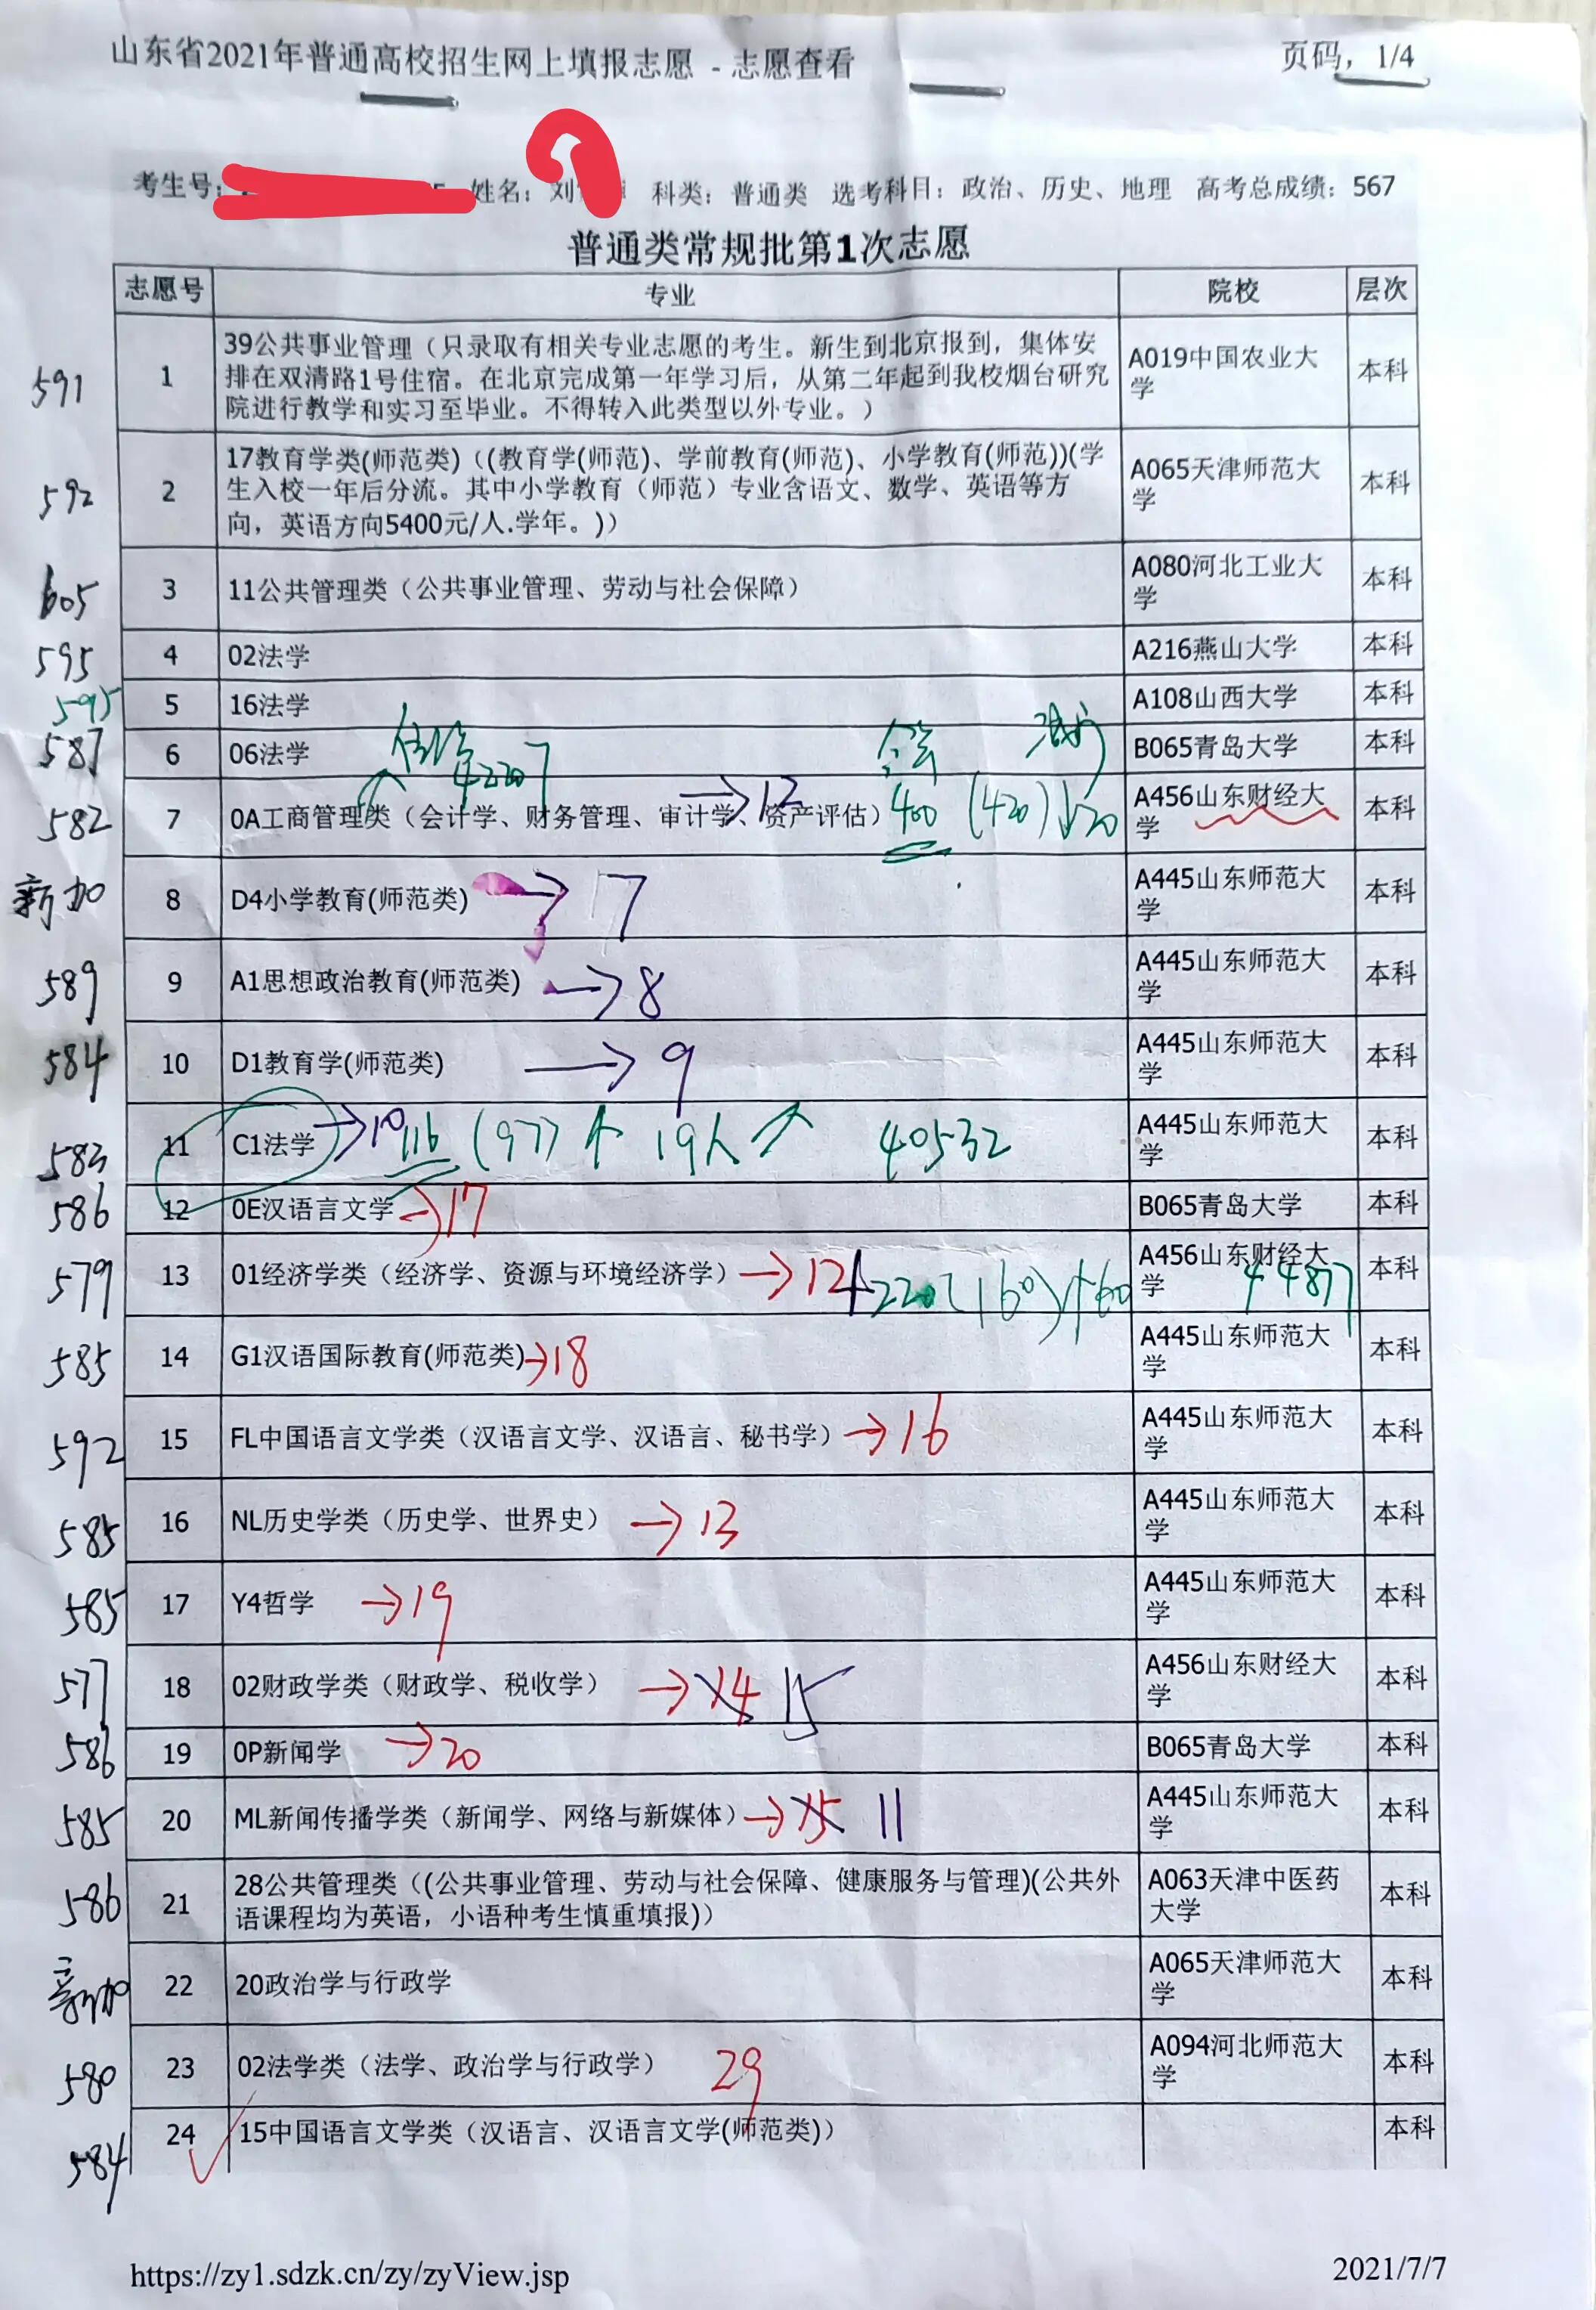 山东省2021年普通高校招生网上填报志愿 - 志愿查看
页码，1/4
考生号: 姓名: 刘 科类: 普通类 选考科目: 政治、历史、地理 高考总成绩: 567
普通类常规批第1次志愿
志愿号 专业 院校 层次
39公共事业管理（只录取有相关专业志愿的考生。新生到北京报到，集体安
591 1 排在双清路1号住宿。在北京完成第一年学习后，从第二年起到我校烟台研究 A019中国农业大学 本科
院进行教学和实习至毕业。不得转入此类型以外专业。）
17教育学类(师范类)（(教育学(师范)、学前教育(师范)、小学教育(师范))(学
592 2 生入校一年后分流。其中小学教育（师范）专业含语文、数学、英语等方 A065天津师范大学 本科
向，英语方向5400元/人.学年。)）
605 3 11公共管理类（公共事业管理、劳动与社会保障） A080河北工业大学 本科
595 4 02法学 A216燕山大学 本科
595 5 16法学 A108山西大学 本科
587 6 06法学 B065青岛大学 本科
582 7 0A工商管理类（会计学、财务管理、审计学、资产评估） →12 400 (420)↓20 A456山东财经大学 本科
新加 8 D4小学教育(师范类) →7 A445山东师范大学 本科
589 9 A1思想政治教育(师范类) →8 A445山东师范大学 本科
584 10 D1教育学(师范类) →9 A445山东师范大学 本科
583 11 C1法学 →10 116 (97)↑ 19人↗ 40532 A445山东师范大学 本科
586 12 0E汉语言文学 →17 B065青岛大学 本科
579 13 01经济学类（经济学、资源与环境经济学） →12 220 (160)↑60 A456山东财经大学 44877 本科
585 14 G1汉语国际教育(师范类) →18 A445山东师范大学 本科
592 15 FL中国语言文学类（汉语言文学、汉语言、秘书学） →16 A445山东师范大学 本科
585 16 NL历史学类（历史学、世界史） →13 A445山东师范大学 本科
585 17 Y4哲学 →19 A445山东师范大学 本科
577 18 02财政学类（财政学、税收学） →14 15 A456山东财经大学 本科
586 19 0P新闻学 →20 B065青岛大学 本科
585 20 ML新闻传播学类（新闻学、网络与新媒体） →15 11 A445山东师范大学 本科
586 21 28公共管理类（(公共事业管理、劳动与社会保障、健康服务与管理)(公共外 A063天津中医药大学 本科
语课程均为英语，小语种考生慎重填报)）
新加 22 20政治学与行政学 A065天津师范大学 本科
580 23 02法学类（法学、政治学与行政学） 29 A094河北师范大学 本科
584 24 15中国语言文学类（汉语言、汉语言文学(师范类)） 本科
https://zy1.sdzk.cn/zy/zyView.jsp
2021/7/7